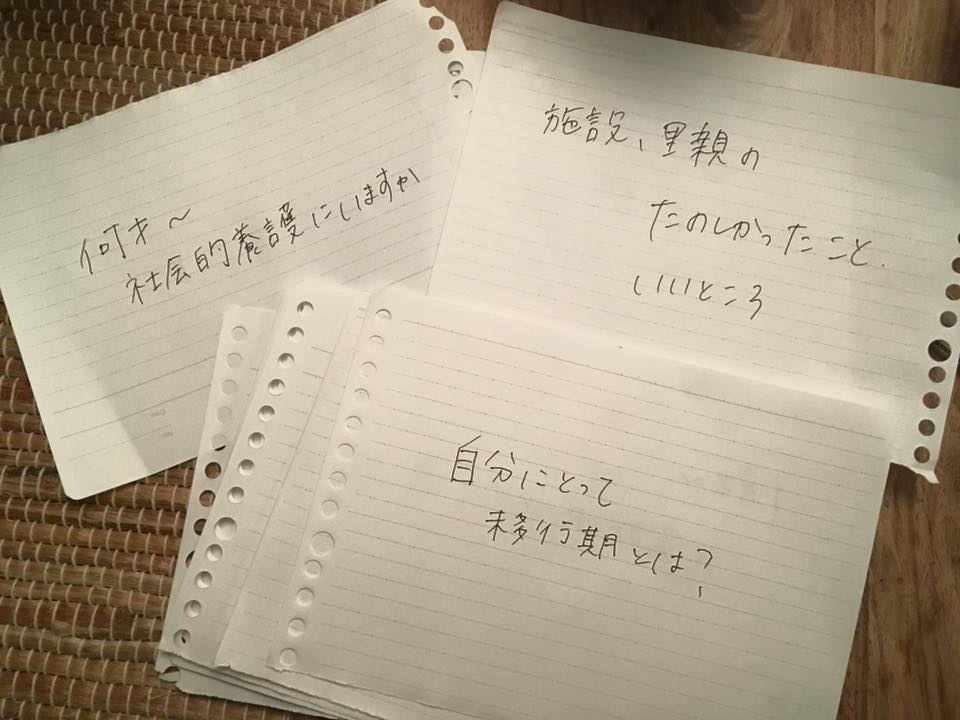 何才～
社会的養護にいますか
施設、里親の
たのしかったこと.
いいところ
自分にとって
移行期とは?